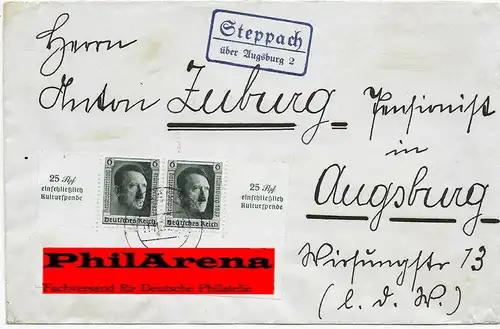 Herrn
Steppach
über Augsburg 2
Anton Zuburg, Pensionist
in
Augsburg
Wirsungstr 13
(l. d. W.)
25 Rpf.
einschließlich
Kulturspende
6 6
Deutsches Reich
6 6
Deutsches Reich
25 Rpf.
einschließlich
Kulturspende
PhilArena
Fachversand für Deutsche Philatelie